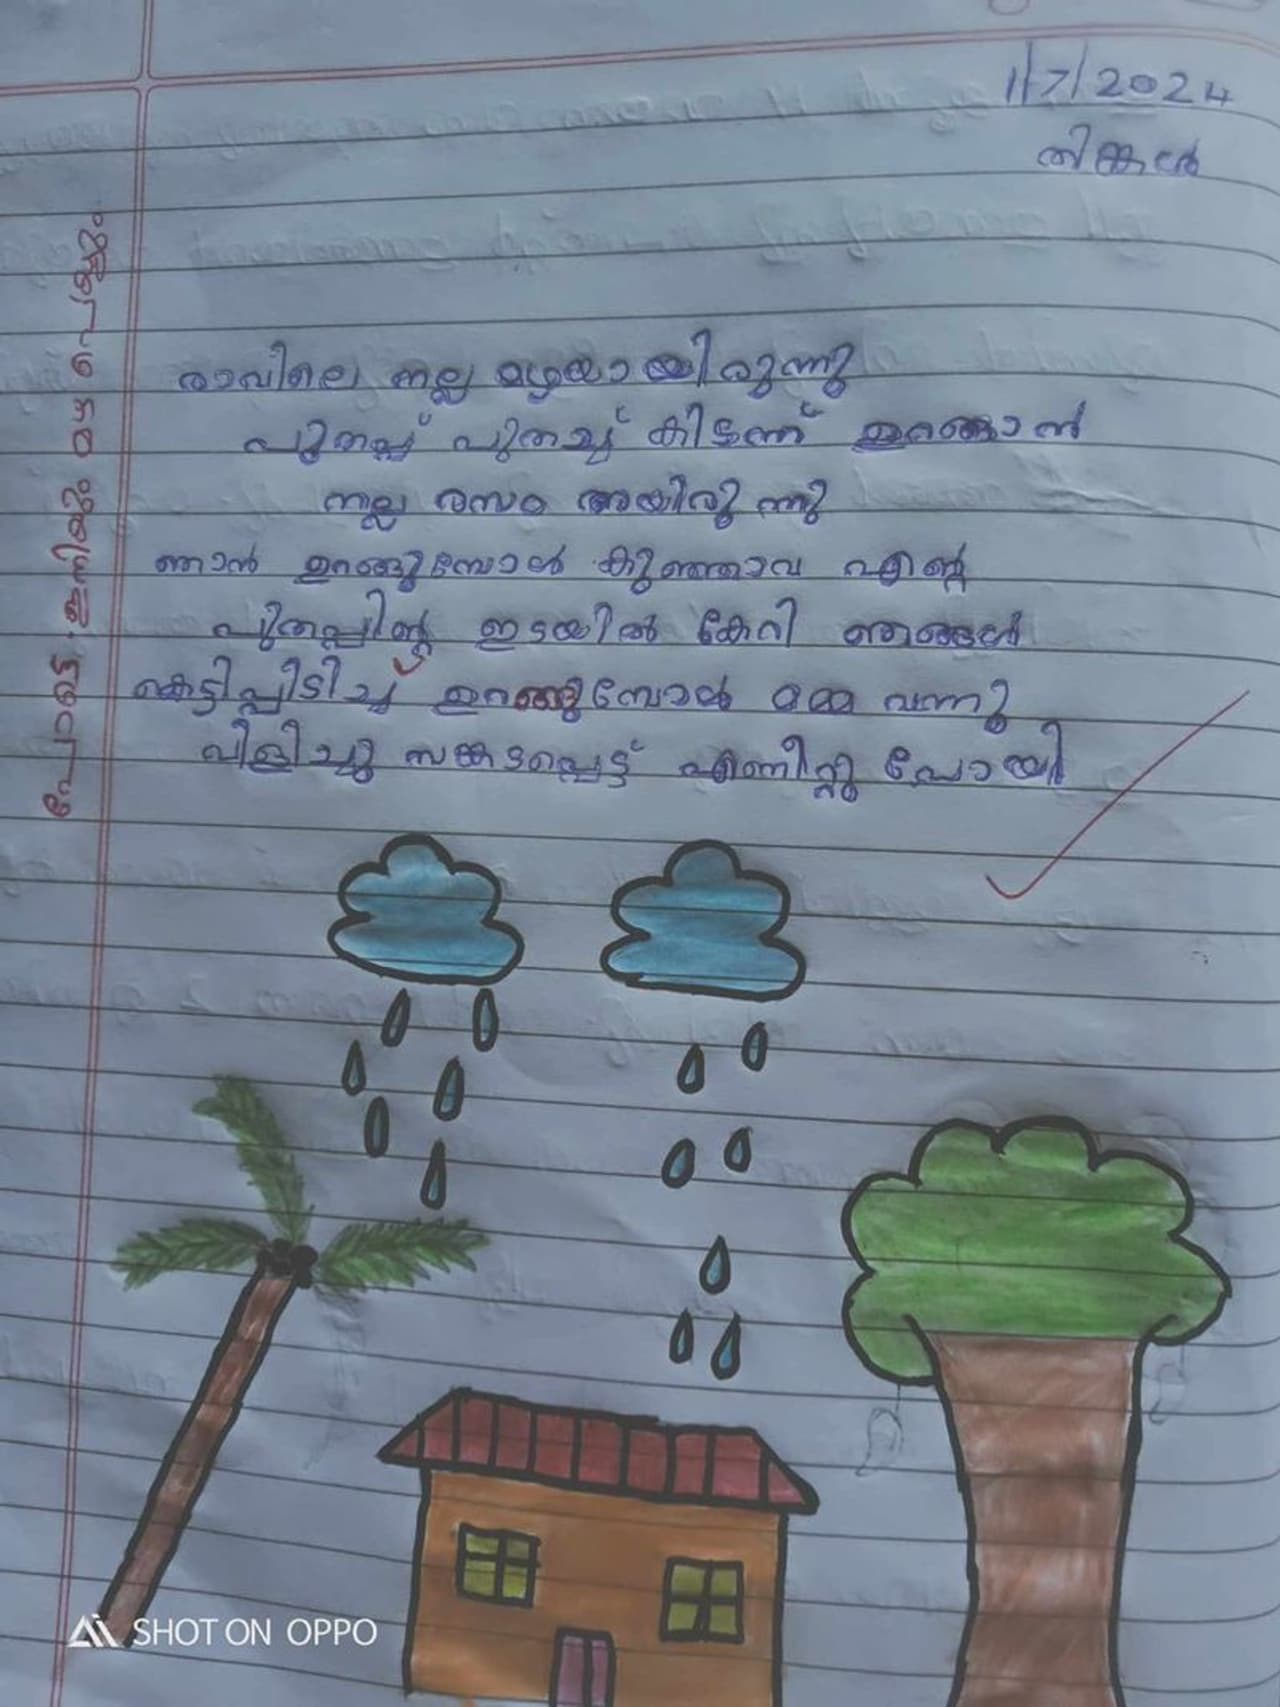 1/7/2024
തിങ്കൾ
രാവിലെ നല്ല മഴയായിരുന്നു
പുതപ്പ് പുതച്ച് കിടന്ന് ഉറങ്ങാൻ
നല്ല രസം അയിരുന്നു
ഞാൻ ഉറങ്ങുമ്പോൾ കുഞ്ഞാവ എന്റെ
പുതപ്പിന്റെ ഇടയിൽ കേറി ഞങ്ങൾ
കെട്ടിപ്പിടിച്ച് ഉറങ്ങുമ്പോൾ അമ്മ വന്നു
വിളിച്ചു സങ്കടപ്പെട്ട് എണീറ്റു പോയി
പോട്ടെ. ഇനിയും മഴ പെയ്യും.
SHOT ON OPPO